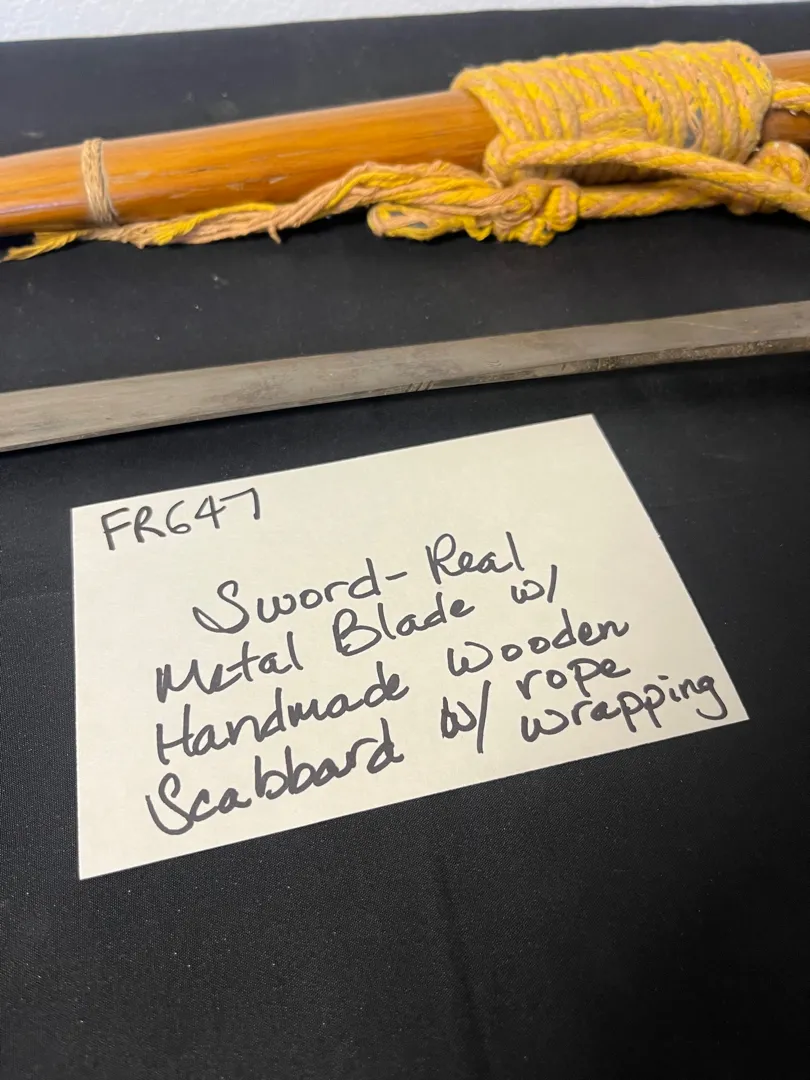 FR647
Sword- Real
Metal Blade w/
Handmade Wooden
Scabbard w/ rope
wrapping